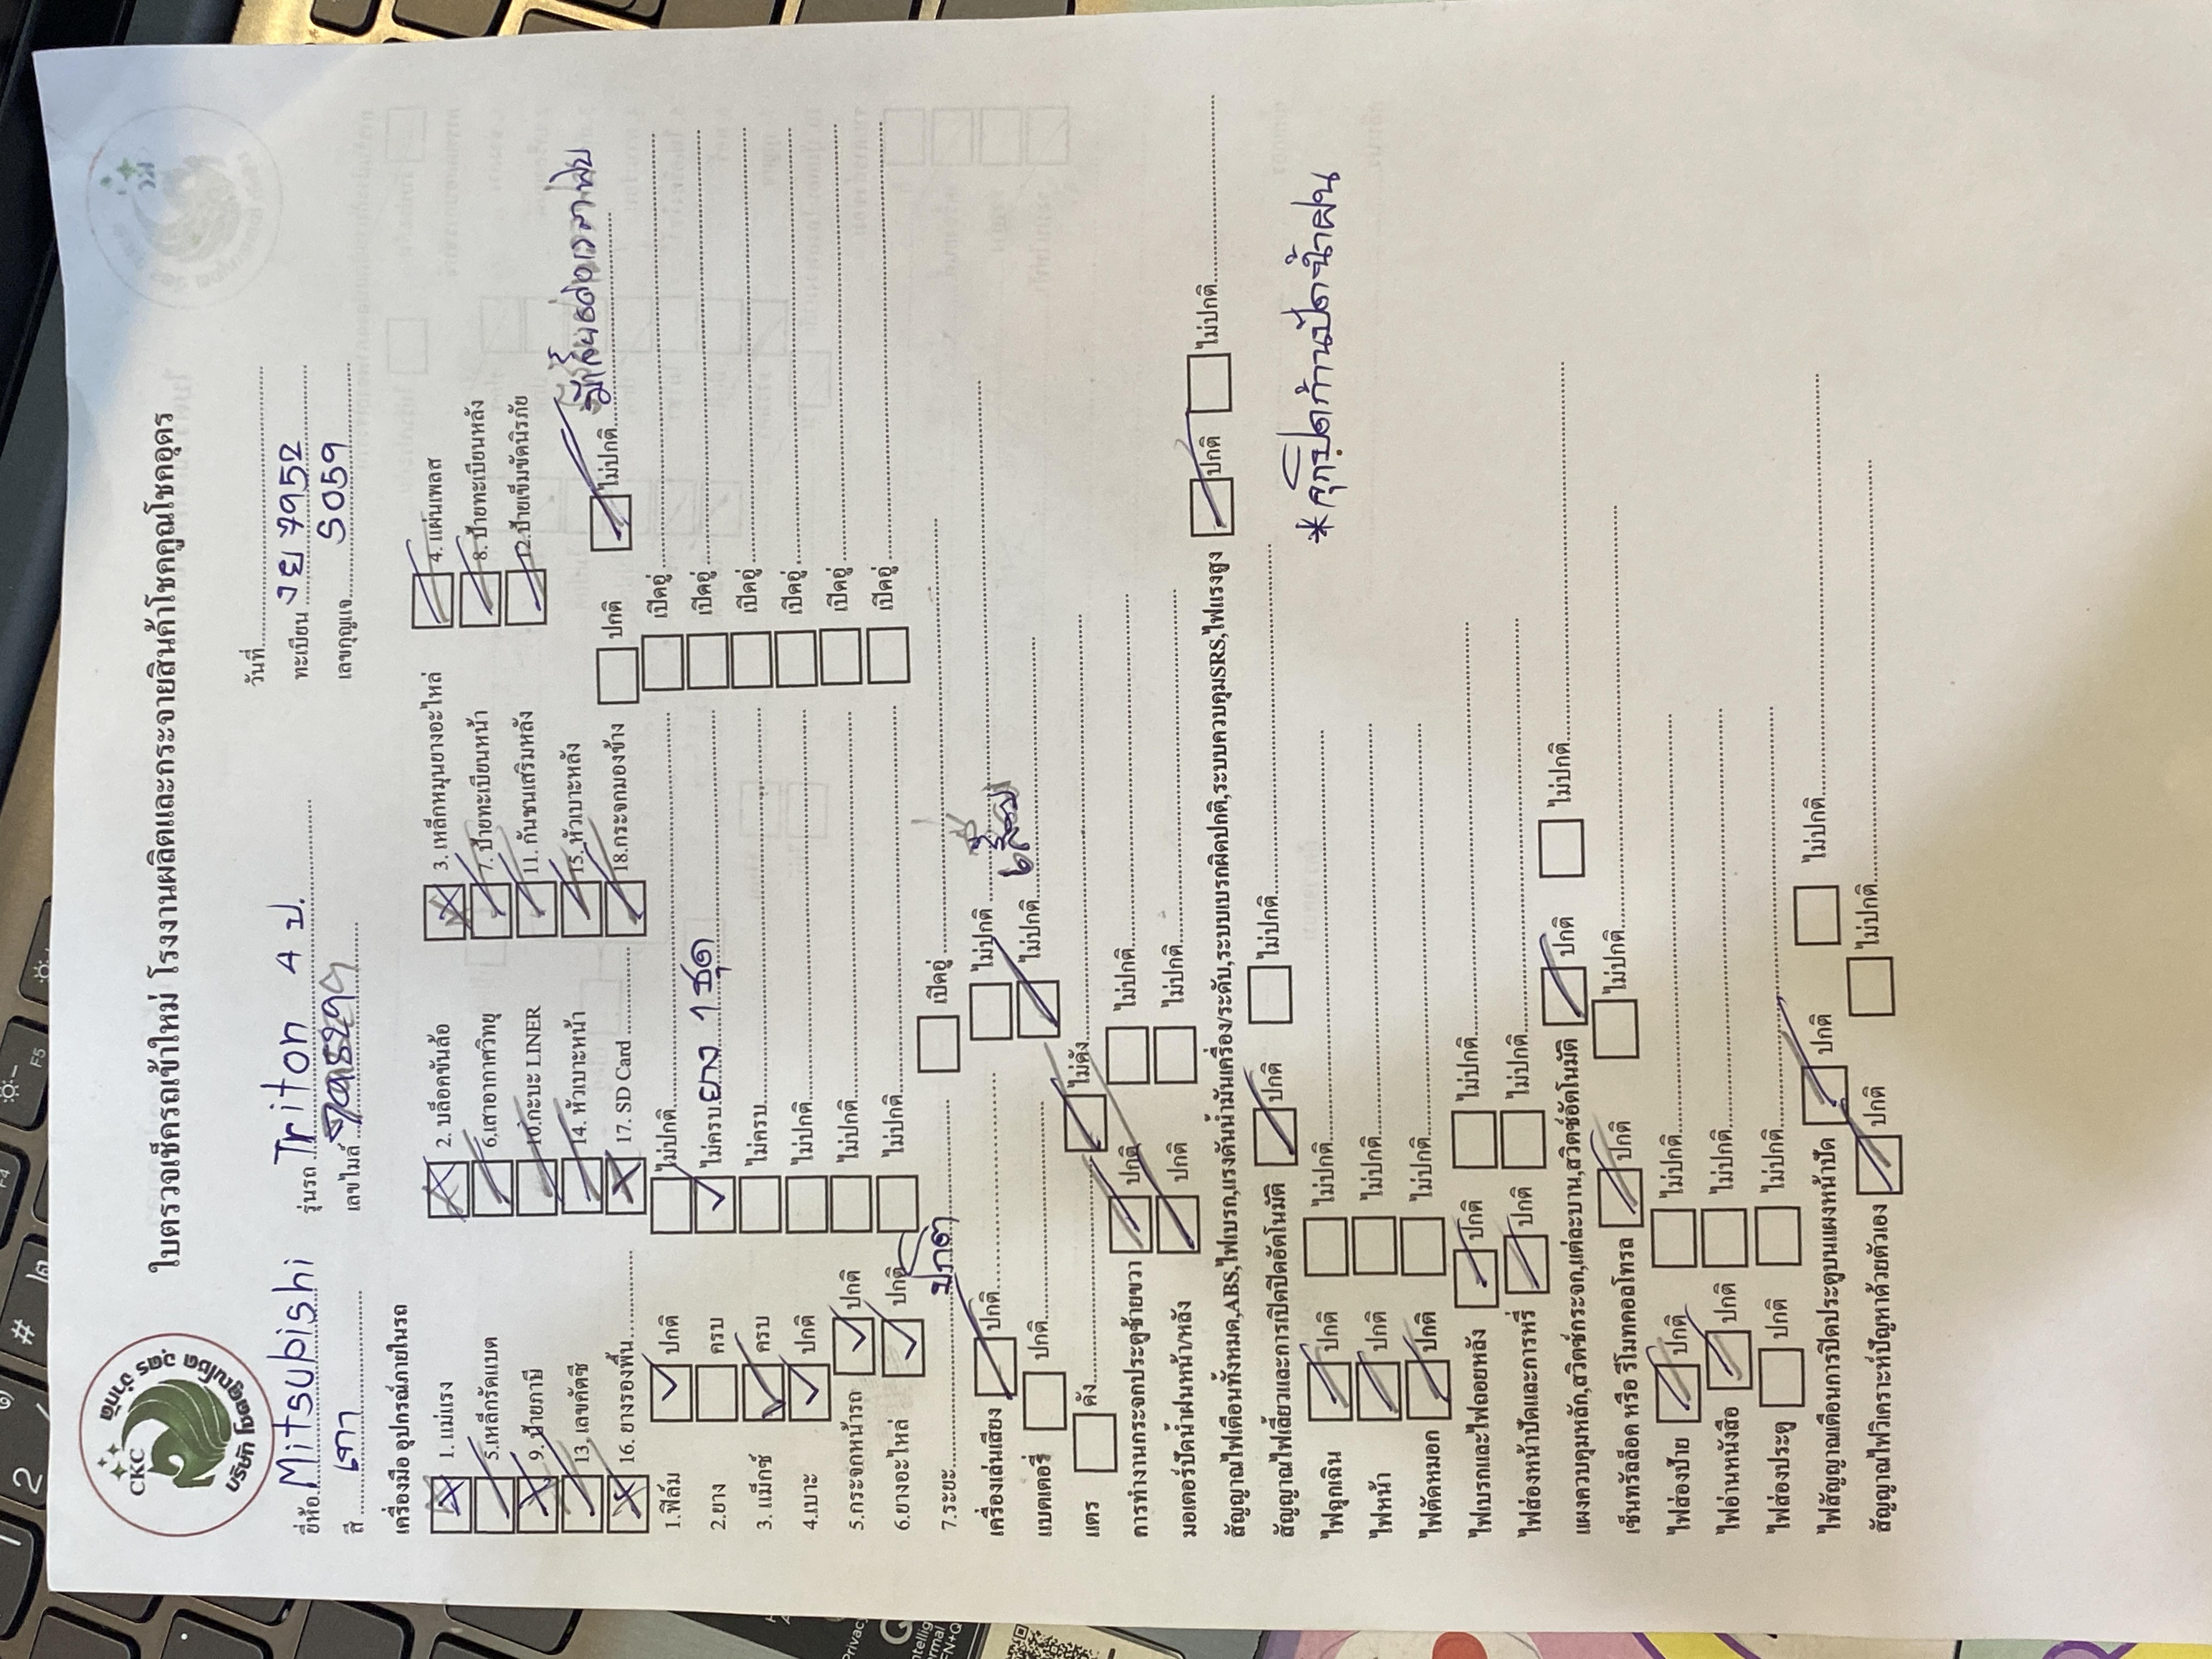 CKC
บริษัท โชคคูณโชค อุดร จำกัด
ใบตรวจเช็ครถเข้าใหม่ โรงงานผลิตและกระจายสินค้าโชคคูณโชคอุดร
วันที่
ยี่ห้อ Mitsubishi รุ่นรถ Triton 4 ป. ทะเบียน งย 7952
สี เทา เลขไมล์ เลขกุญแจ 5059
เครื่องมือ อุปกรณ์ภายในรถ
1. แม่แรง 2. บล็อคขันล้อ 3. เหล็กหมุนยางอะไหล่ 4. แผ่นเพลส
5.เหล็กรัดแบต 6.เสาอากาศวิทยุ 7. ป้ายทะเบียนหน้า 8. ป้ายทะเบียนหลัง
9. ป้ายภาษี 10.กะบะ LINER 11. กันชนเสริมหลัง 12.ป้ายเข็มขัดนิรภัย
13. เลขคัดซี 14. หัวเบาะหน้า 15.หัวเบาะหลัง
16. ยางรองพื้น 17. SD Card 18.กระจกมองข้าง ปกติ ไม่ปกติ
1.ฟิล์ม ปกติ ไม่ปกติ เปิดอู่
2.ยาง ครบ ไม่ครบ ยาง 1 ชุด เปิดอู่
3. แม็กซ์ ครบ ไม่ครบ เปิดอู่
4.เบาะ ปกติ ไม่ปกติ เปิดอู่
5.กระจกหน้ารถ ปกติ ไม่ปกติ เปิดอู่
6.ยางอะไหล่ ปกติ ไม่ปกติ เปิดอู่
7.ระยะ ปกติ เปิดอู่
เครื่องเล่นเสียง ปกติ ไม่ปกติ
แบตเตอรี่ ปกติ ไม่ปกติ เสื่อม
แตร ดัง ไม่ดัง
การทำงานกระจกประตูซ้ายขวา ปกติ ไม่ปกติ
มอเตอร์ปัดน้ำฝนหน้า/หลัง ปกติ ไม่ปกติ
สัญญาณไฟเตือนทั้งหมด,ABS,ไฟเบรก,แรงดันน้ำมันเครื่อง/ระดับ,ระบบเบรกผิดปกติ,ระบบควบคุมSRS,ไฟแรงสูง ปกติ ไม่ปกติ
สัญญาณไฟเลี้ยวและการเปิดปิดอัตโนมัติ ปกติ ไม่ปกติ
ไฟฉุกเฉิน ปกติ ไม่ปกติ *ลูกปิดก้านปัดน้ำฝน
ไฟหน้า ปกติ ไม่ปกติ
ไฟตัดหมอก ปกติ ไม่ปกติ
ไฟเบรกและไฟถอยหลัง ปกติ ไม่ปกติ
ไฟส่องหน้าปัดและการหรี่ ปกติ ไม่ปกติ
แผงควบคุมหลัก,สวิตช์กระจก,แต่ละบาน,สวิตช์อัตโนมัติ ปกติ ไม่ปกติ
เซ็นทรัลล็อค หรือ รีโมทคอลโทรล ปกติ ไม่ปกติ
ไฟส่องป้าย ปกติ ไม่ปกติ
ไฟอ่านหนังสือ ปกติ ไม่ปกติ
ไฟส่องประตู ปกติ ไม่ปกติ
ไฟสัญญาณเตือนการปิดประตูบนแผงหน้าปัด ปกติ ไม่ปกติ
สัญญาณไฟวิเคราะห์ปัญหาด้วยตัวเอง ปกติ ไม่ปกติ